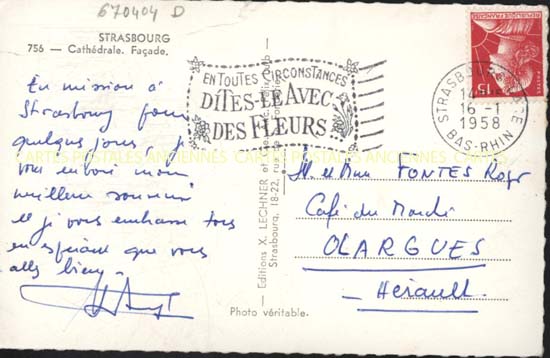 670404 D
STRASBOURG
756 — Cathédrale. Façade.
En mission à
Strasbourg pour
quelques jours, je
vous envoie mon
meilleur souvenir
et je vous embrasse tous
en espérant que vous
allez bien.
EN TOUTES CIRCONSTANCES
DITES-LE AVEC
DES FLEURS
STRASBOURG
16 -1
1958
BAS-RHIN
REPUBLIQUE FRANÇAISE
15F
POSTES
CARTES POSTALES ANCIENNES
CARTES POSTALES ANCIENNES
Editions X. LECHNER
Strasbourg, 18-22, rue
Photo véritable.
M. et Mme PONTES Roger
Café du Marché
OLARGUES
- Hérault -